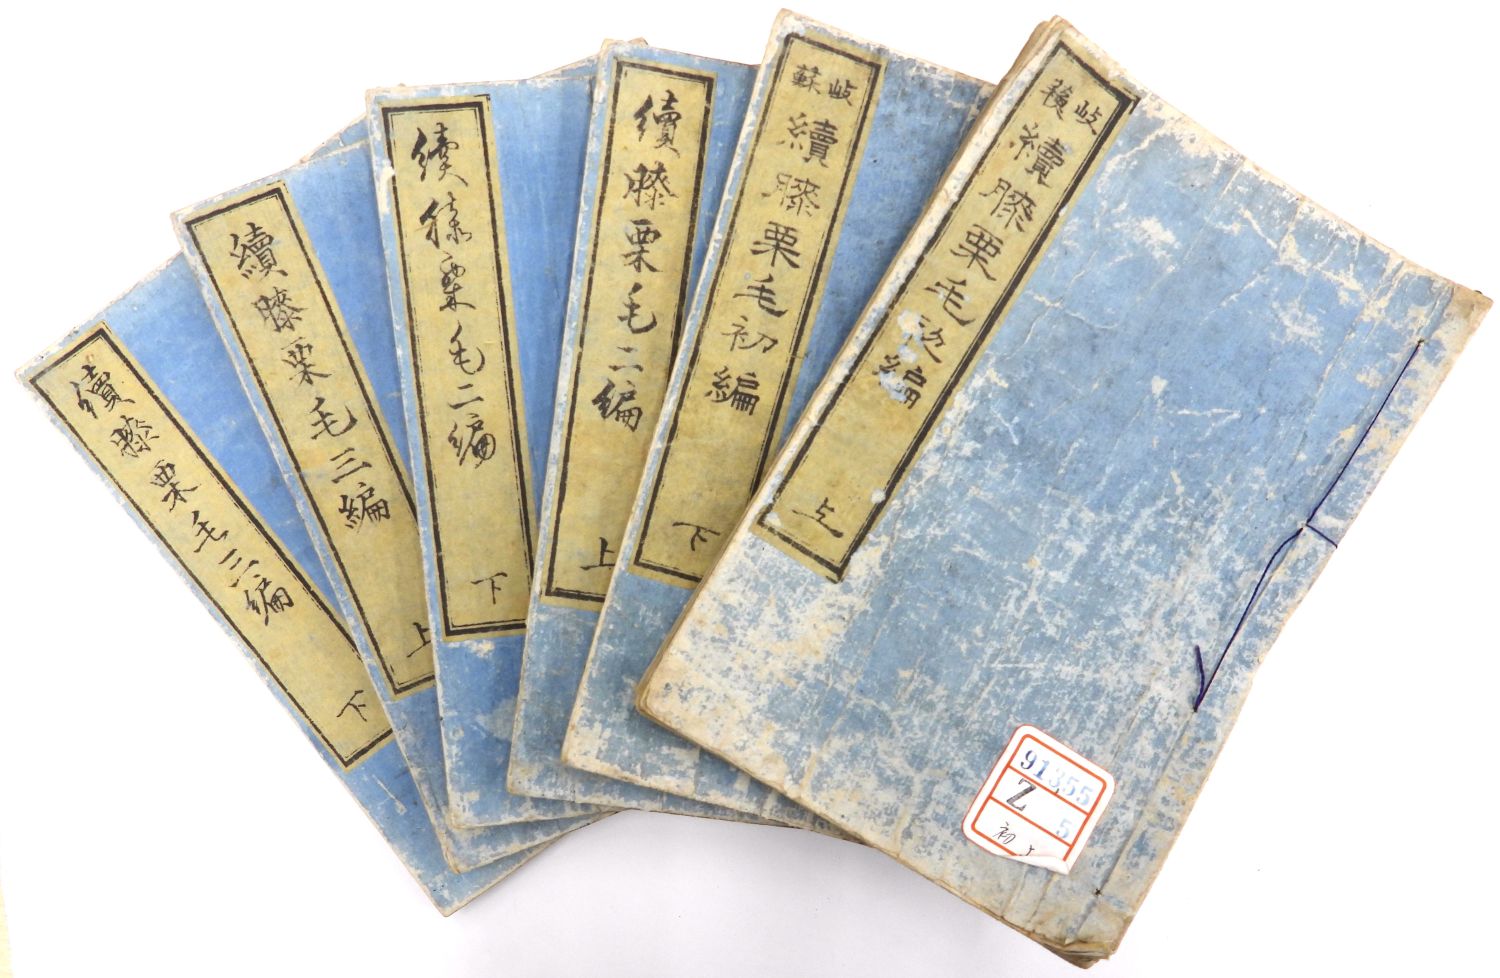 岐蘇
續膝栗毛初編
上
岐蘇
續膝栗毛初編
下
續膝栗毛二編
上
續膝栗毛二編
下
續膝栗毛三編
上
續膝栗毛三編
下
91355
Z 5
初上